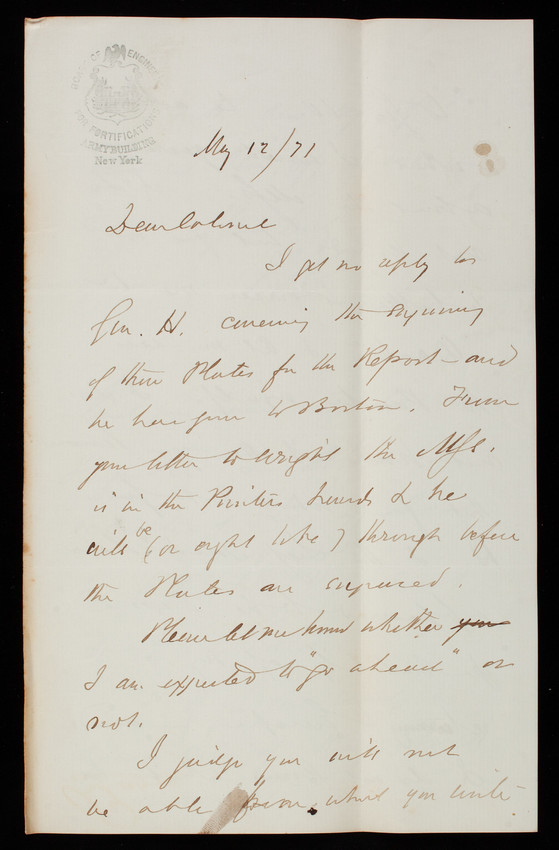 BOARD OF ENGINEERS
FOR FORTIFICATIONS
ARMY BUILDING
New York
May 12/71
Dear Colonel
I get no reply to
Gen. H. concerning the engraving
of three Plates for the Report – and
he has gone to Boston. From
your letter to Wright the MSS.
is in the Printers hands & he
will be (or ought to be) through before
the Plates are engraved.
Please let me know whether you
I am expected to "go ahead" or
not.
I judge you will not
be able from what you write